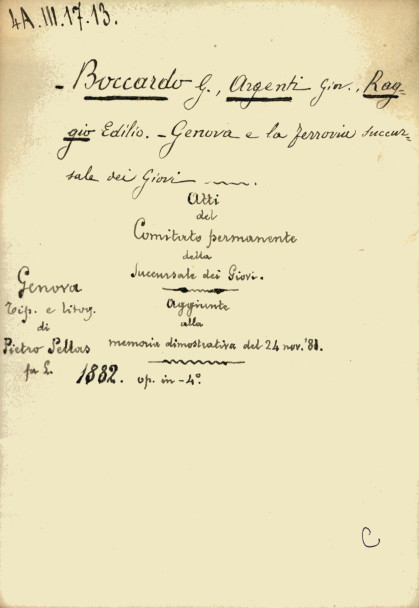 4A.III.17.13.
- Boccardo G., Argenti Giov., Rag-
gio Edilio. - Genova e la ferrovia succur-
sale dei Giovi
Atti
del
Comitato permanente
della
Succursale dei Giovi.
Aggiunte
alla
memoria dimostrativa del 24 nov. '81.
Genova
Tip. e litog.
di
Pietro Pellas
fu L.
1882. op. in-4°.
C